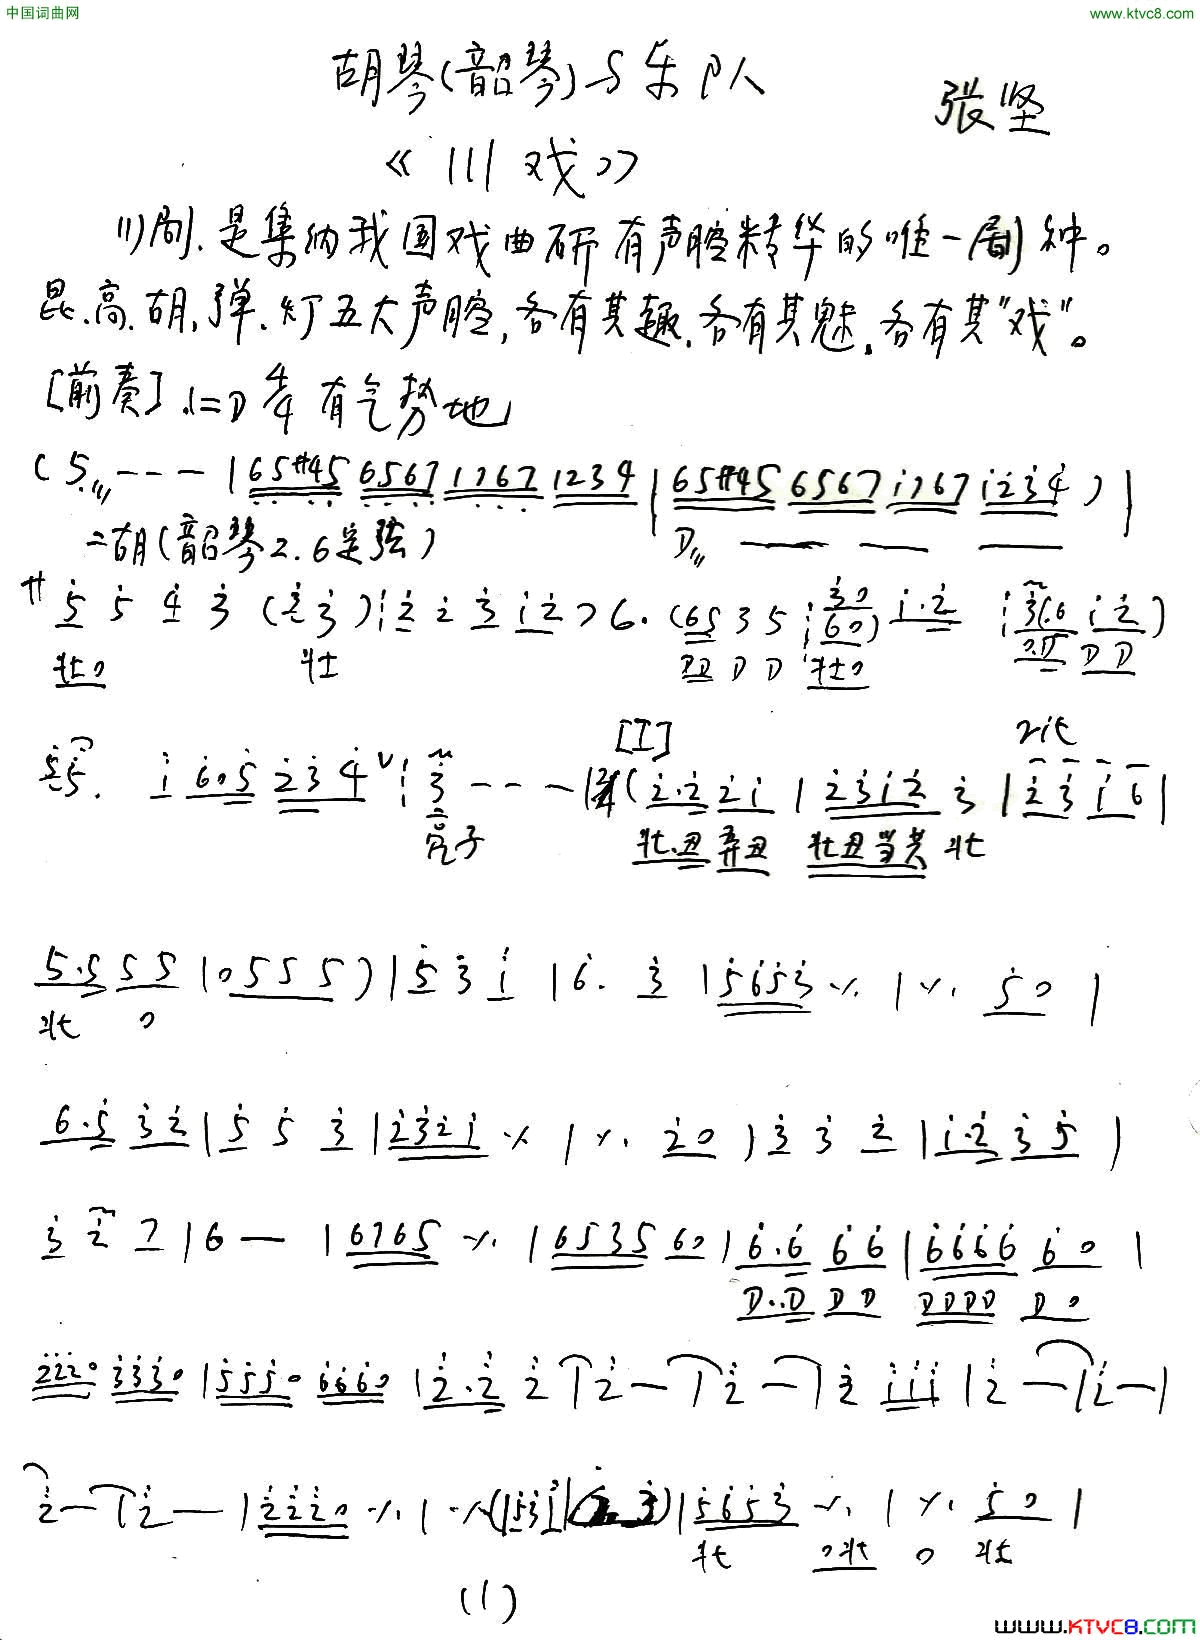 中国词曲网
www.ktvc8.com
胡琴(韶琴)与乐队
张坚
《川戏》
川剧.是集纳我国戏曲所有声腔精华的唯一剧种。
昆.高.胡.弹.灯五大声腔,各有其趣.各有其魅.各有其"戏"。
[前奏].1=D 4/4 有气势地
(5 - - - | 65#45 6567 1767 1234 | 65#45 6567 1767 1234 ) |
二胡(韶琴2.6定弦)
5 5 4 3
壮0 壮
[I] rit
2.2 21 | 2321 3 | 2 3 1 6 |
亮子
5.5 5 5 | 0 5 5 5 ) | 5 3 1 | 6. 3 | 5653 ٪ | ٪ 5 0 |
壮 0
6.5 3 2 | 5 5 3 | 2321 ٪ | ٪ 2 0 | 3 3 2 | 1.2 3 5 |
3 2 7 | 6 — | 6765 ٪ | 6535 60 | 6.6 6 6 | 6666 6 0 |
D..D D D DDDD D 0
2220 3330 | 5550 6660 | 2.2 2 | 2 — | 2 — | 2 111 | 2 — | 2 — |
2 — | 2 — | 2220 ٪ | ٪ | 5653 ٪ | ٪ 5 0 |
壮 0壮 0 壮
(1)
www.KTVC8.com